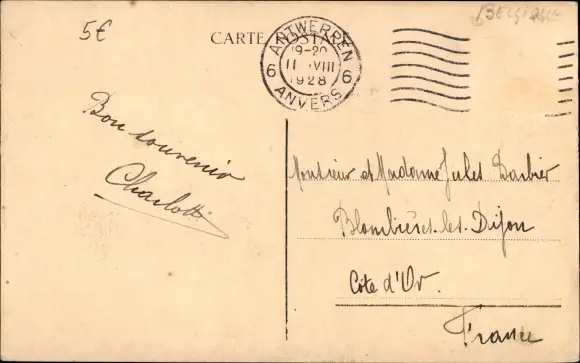 5€
BELGIQUE
CARTE POSTALE
ANTWERPEN
19-20
11 VIII
1928
6 6
ANVERS
Bon souvenir
Charlotte
Monsieur et Madame Jules Barbier
Plombières-les-Dijon
Côte d'Or.
France